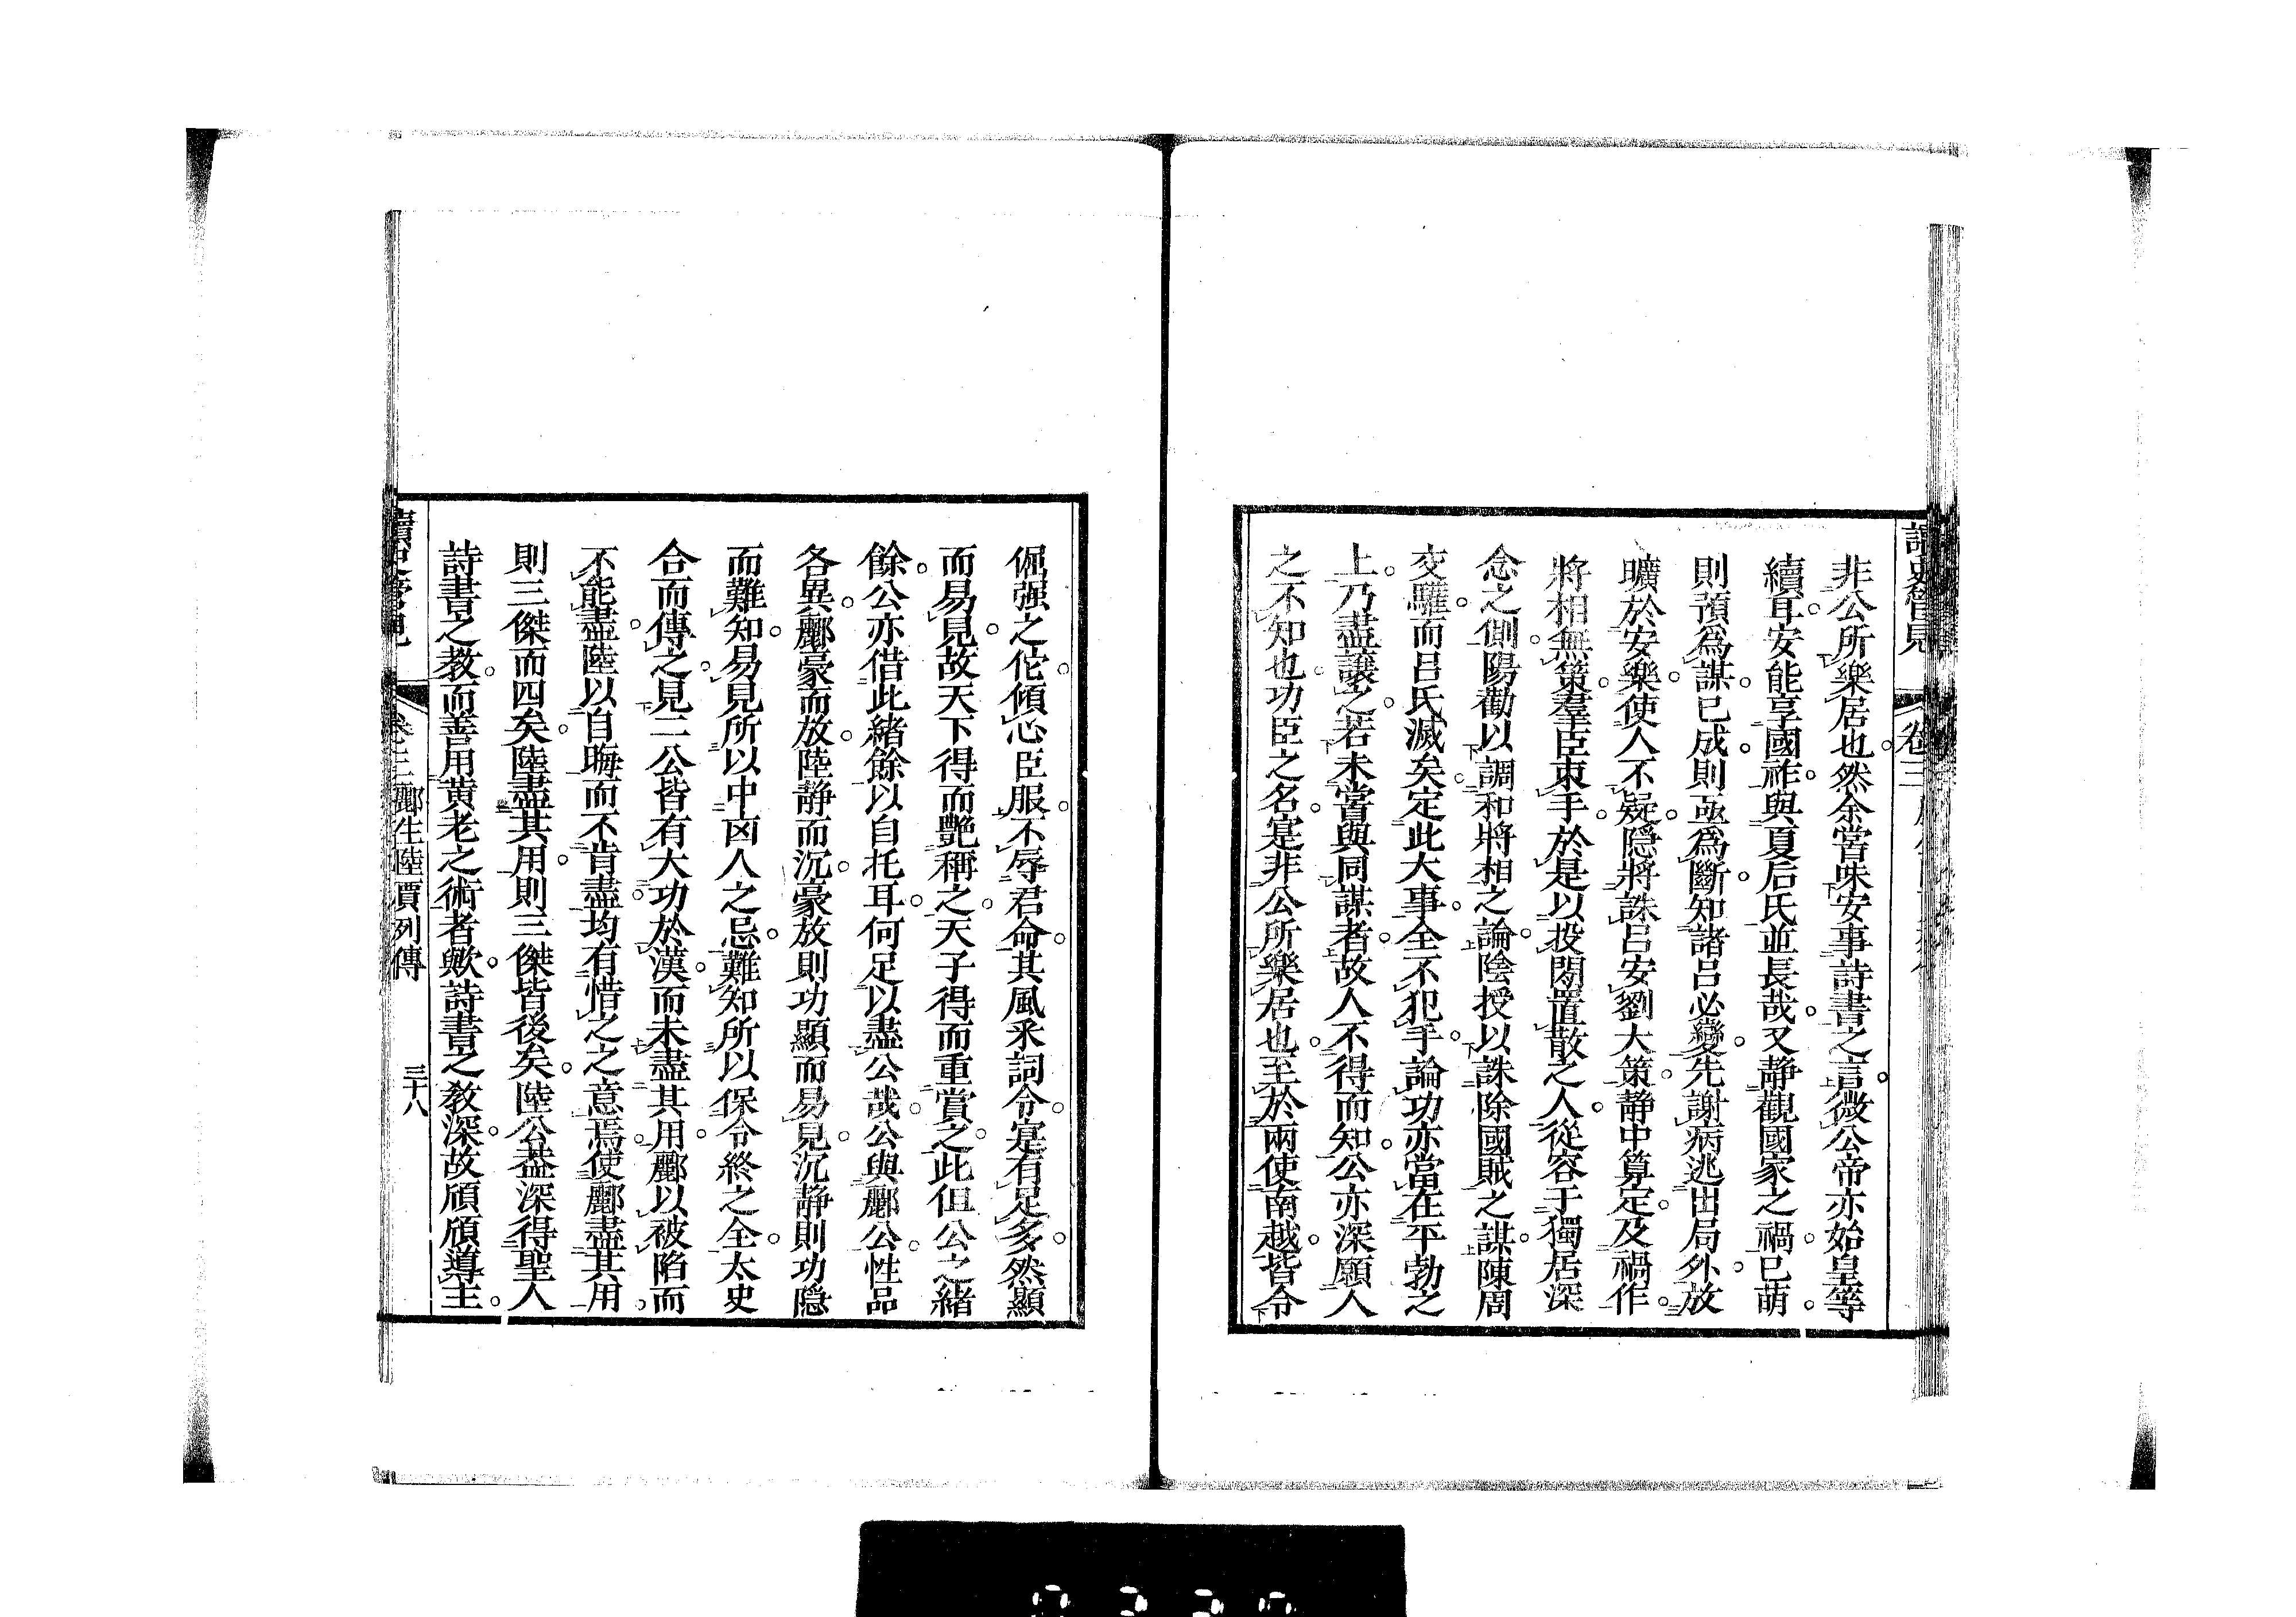 非公所樂居也。然余嘗味安事詩書之言。微公帝亦始皇等
續耳。安能享國祚。與夏后氏並長哉。又靜觀國家之禍。已萌。
則預爲謀。已成。則亟爲斷。知諸呂必變。先謝病逃出局外。放
曠於安樂。使人不疑。隱將誅呂安劉大策。靜中算定。及禍作。
將相無策。羣臣束手。於是以投閑置散之人。從容于獨居深
念之側。陽勸以調和將相之論。陰授以誅除國賊之謀。陳周
交驩。而呂氏滅矣。定此大事。全不犯手。論功亦當在平勃之
上。乃盡讓之。若未嘗與同謀者。故人不得而知。公亦深願人
之不知也。功臣之名。寔非公所樂居也。至於兩使南越。皆令
倔强之佗。傾心臣服。不辱君命。其風采詞令。寔有足多。然顯
而易見。故天下得而艷稱之。天子得而重賞之。此但公之緒
餘。公亦借此緒餘以自托耳。何足以盡公哉。公與酈公。性品
各異。酈豪而放。陸靜而沉。豪放則功顯而易見。沉靜則功隱
而難知。易見所以中內人之忌。難知所以保令終之全。太史
合而傳之。見二公皆有大功於漢。而未盡其用。酈以被陷而
不能盡。陸以自晦而不肯盡。均有惜之之意焉。使酈盡其用。
則三傑而四矣。陸盡其用。則三傑皆後矣。陸公盖深得聖人
詩書之教。而善用黄老之術者歟。詩書之敎深。故頎頎導主。
卷三 酈生陸賈列傳 三十八